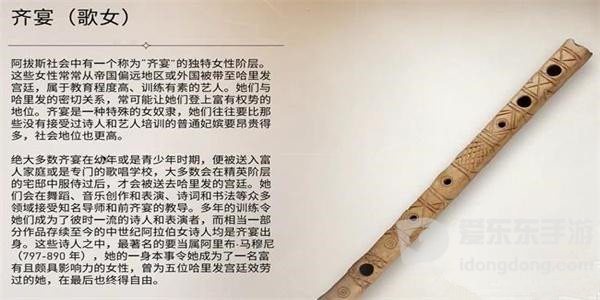 齐宴（歌女）
阿拔斯社会中有一个称为“齐宴”的独特女性阶层。
这些女性常常从帝国偏远地区或外国被带至哈里发
宫廷，属于教育程度高、训练有素的艺人。她们与
哈里发的密切关系，常可能让她们登上富有权势的
地位。齐宴是一种特殊的女奴隶，她们往往要比那
些没有接受过诗人和艺人培训的普通妃嫔要昂贵得
多，社会地位也更高。
绝大多数齐宴在幼年或是青少年时期，便被送入富
人家庭或是专门的歌唱学校，大多数会在精英阶层
的宅邸中服侍过后，才会被送去哈里发的宫廷。她
们会在舞蹈、音乐创作和表演、诗词和书法等众多
领域接受知名导师和前齐宴的教导。多年的训练令
她们成为了彼时一流的诗人和表演者，而相当一部
分作品存续至今的中世纪阿拉伯女诗人均是齐宴出
身。这些诗人之中，最著名的要当属阿里布·马穆尼
（797-890 年），她的一身本事令她成为了一名富
有且颇具影响力的女性，曾为五位哈里发宫廷效劳
过的她，在最后也终得自由。
爱乐东手游
idongdong.com